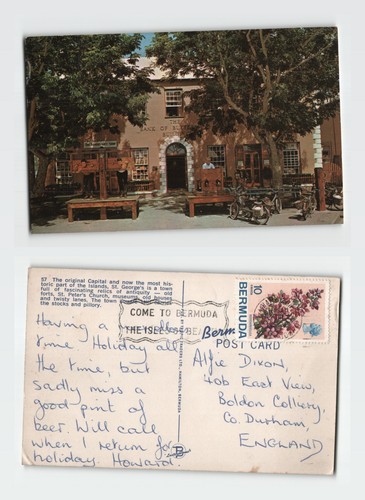 THE
57 The original Capital and now the most his-
toric part of the Islands, St. George's is a town
full of fascinating relics of antiquity — old
forts, St. Peter's Church, museums, old houses
and twisty lanes. The town
the stocks and pillory.
COME TO BERMUDA
THE ISLES OF
BERMUDA
10
Berm
POST CARD
Having a
time Holiday all
the time, but
sadly miss a
good pint of
beer. Will call
when I return for
holiday. Howard.
Alfie Dixon,
40b East View,
Boldon Colliery,
Co. Durham,
ENGLAND